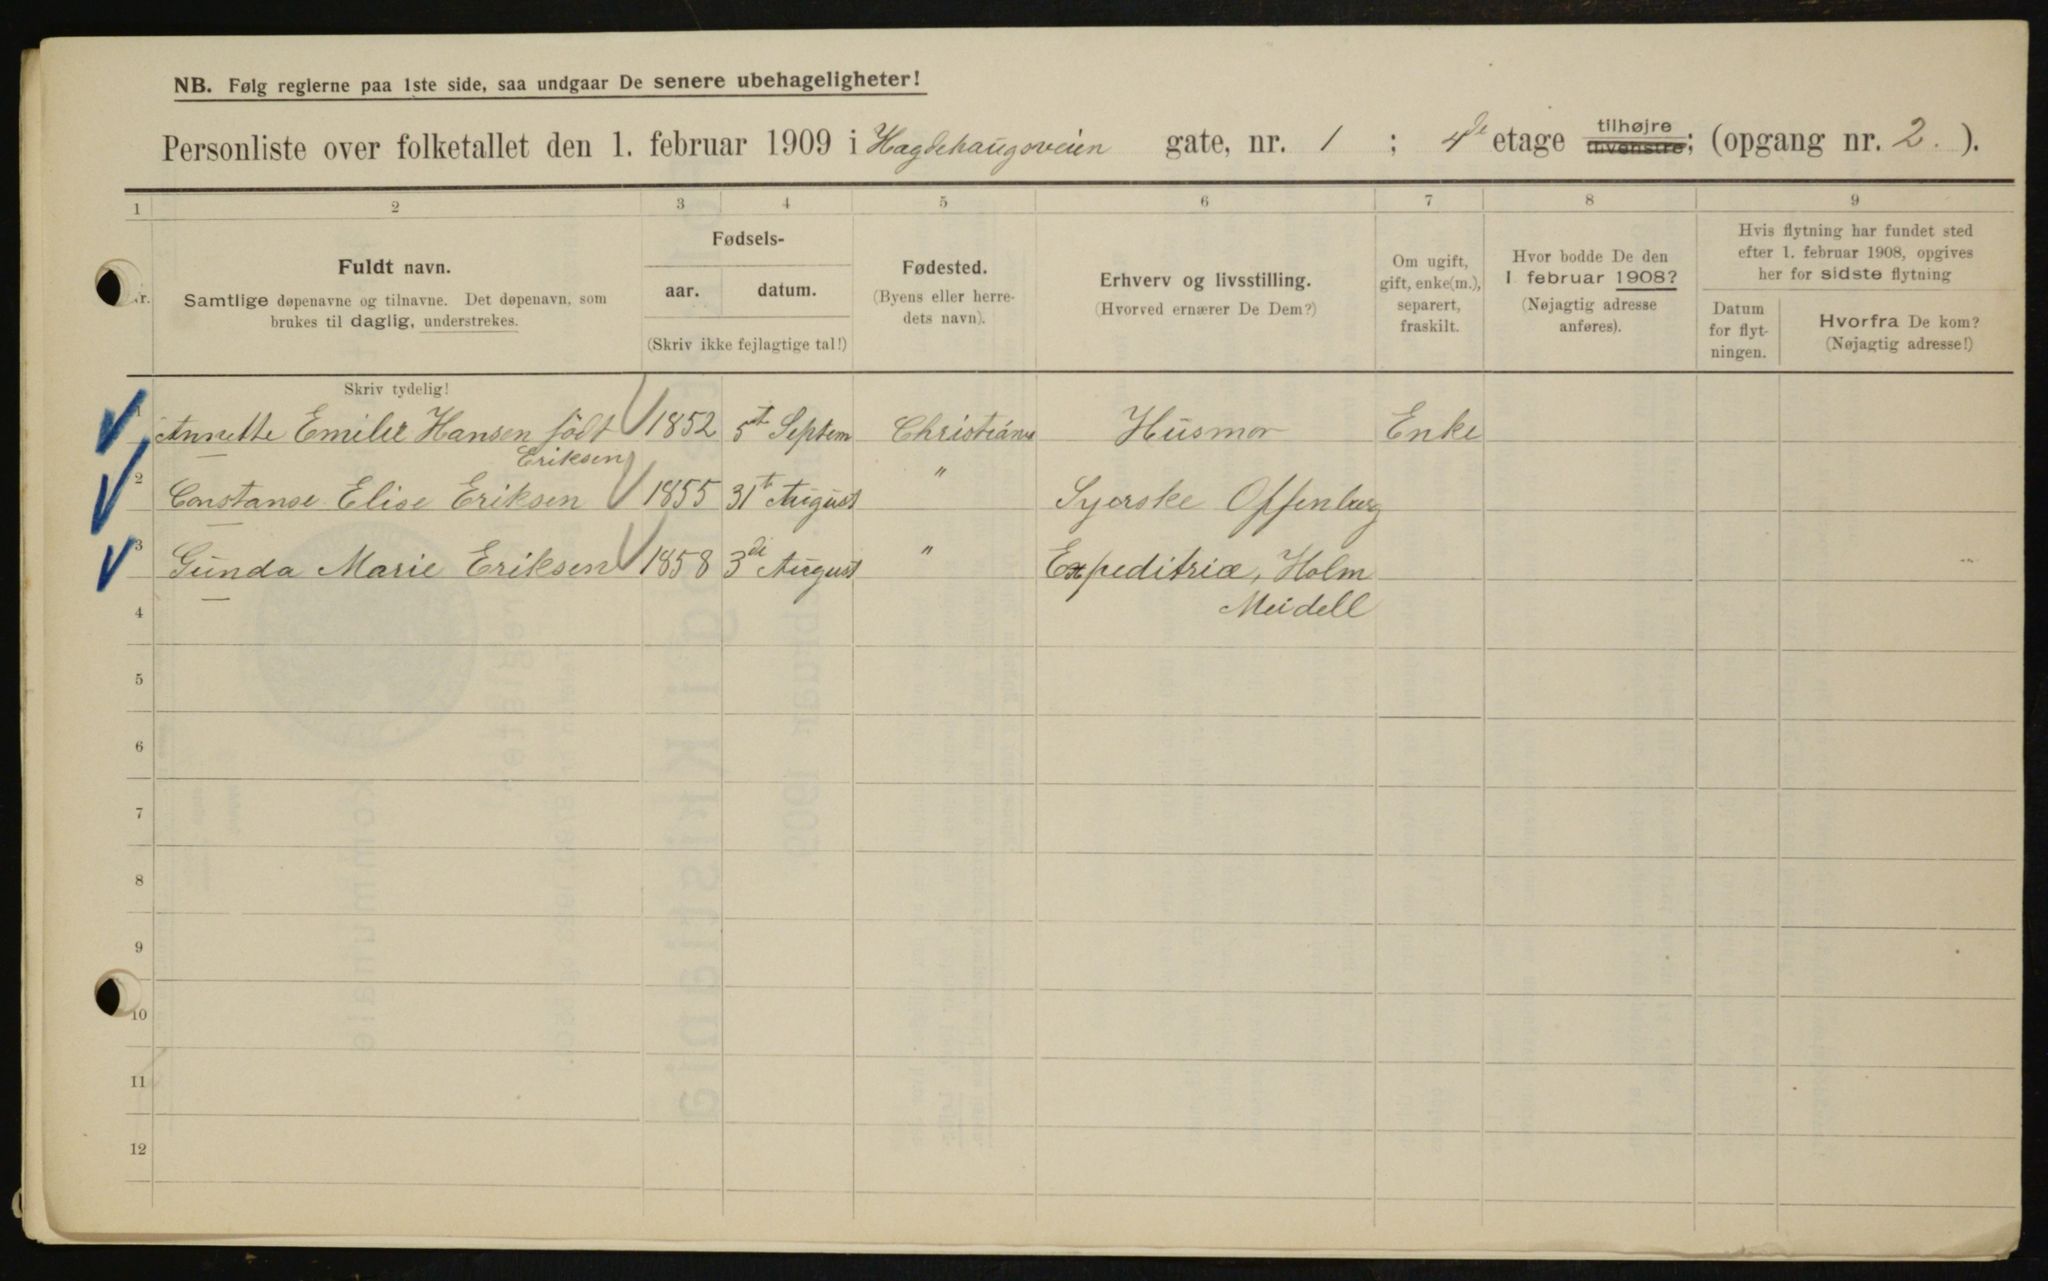 NB. Følg reglerne paa 1ste side, saa undgaar De senere ubehageligheter!
Personliste over folketallet den 1. februar 1909 i Hægdehaugsveien gate, nr. 1 ; 4de etage tilhøjre t.venstre; (opgang nr. 2. ).
1 2 3 4 5 6 7 8 9
Nr.
Fuldt navn.
Samtlige døpenavne og tilnavne. Det døpenavn, som
brukes til daglig, understrekes.
Fødsels-
aar. datum.
(Skriv ikke fejlagtige tal!)
Fødested.
(Byens eller herre-
dets navn).
Erhverv og livsstilling.
(Hvorved ernærer De Dem?)
Om ugift,
gift, enke(m.),
separert,
fraskilt.
Hvor bodde De den
1 februar 1908?
(Nøjagtig adresse
anføres).
Hvis flytning har fundet sted
efter 1. februar 1908, opgives
her for sidste flytning
Datum
for flyt-
ningen.
Hvorfra De kom?
(Nøjagtig adresse!)
Skriv tydelig!
1 Annette Emilie Hansen født 1852 5t Septem Christiania Husmor Enke
Eriksen
2 Constanse Elise Eriksen 1855 31t August " Syerske Offenberg
3 Gunda Marie Eriksen 1858 3di August " Expeditrice, Holm
4 Meidell
5
6
7
8
9
10
11
12